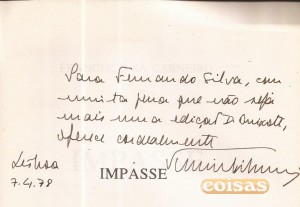 Para Fernando Silva, com
muita pena que não seja
mais uma edição D. Quixote,
oferece cordialmente
Lisboa
7.4.78
IMPASSE
coisas